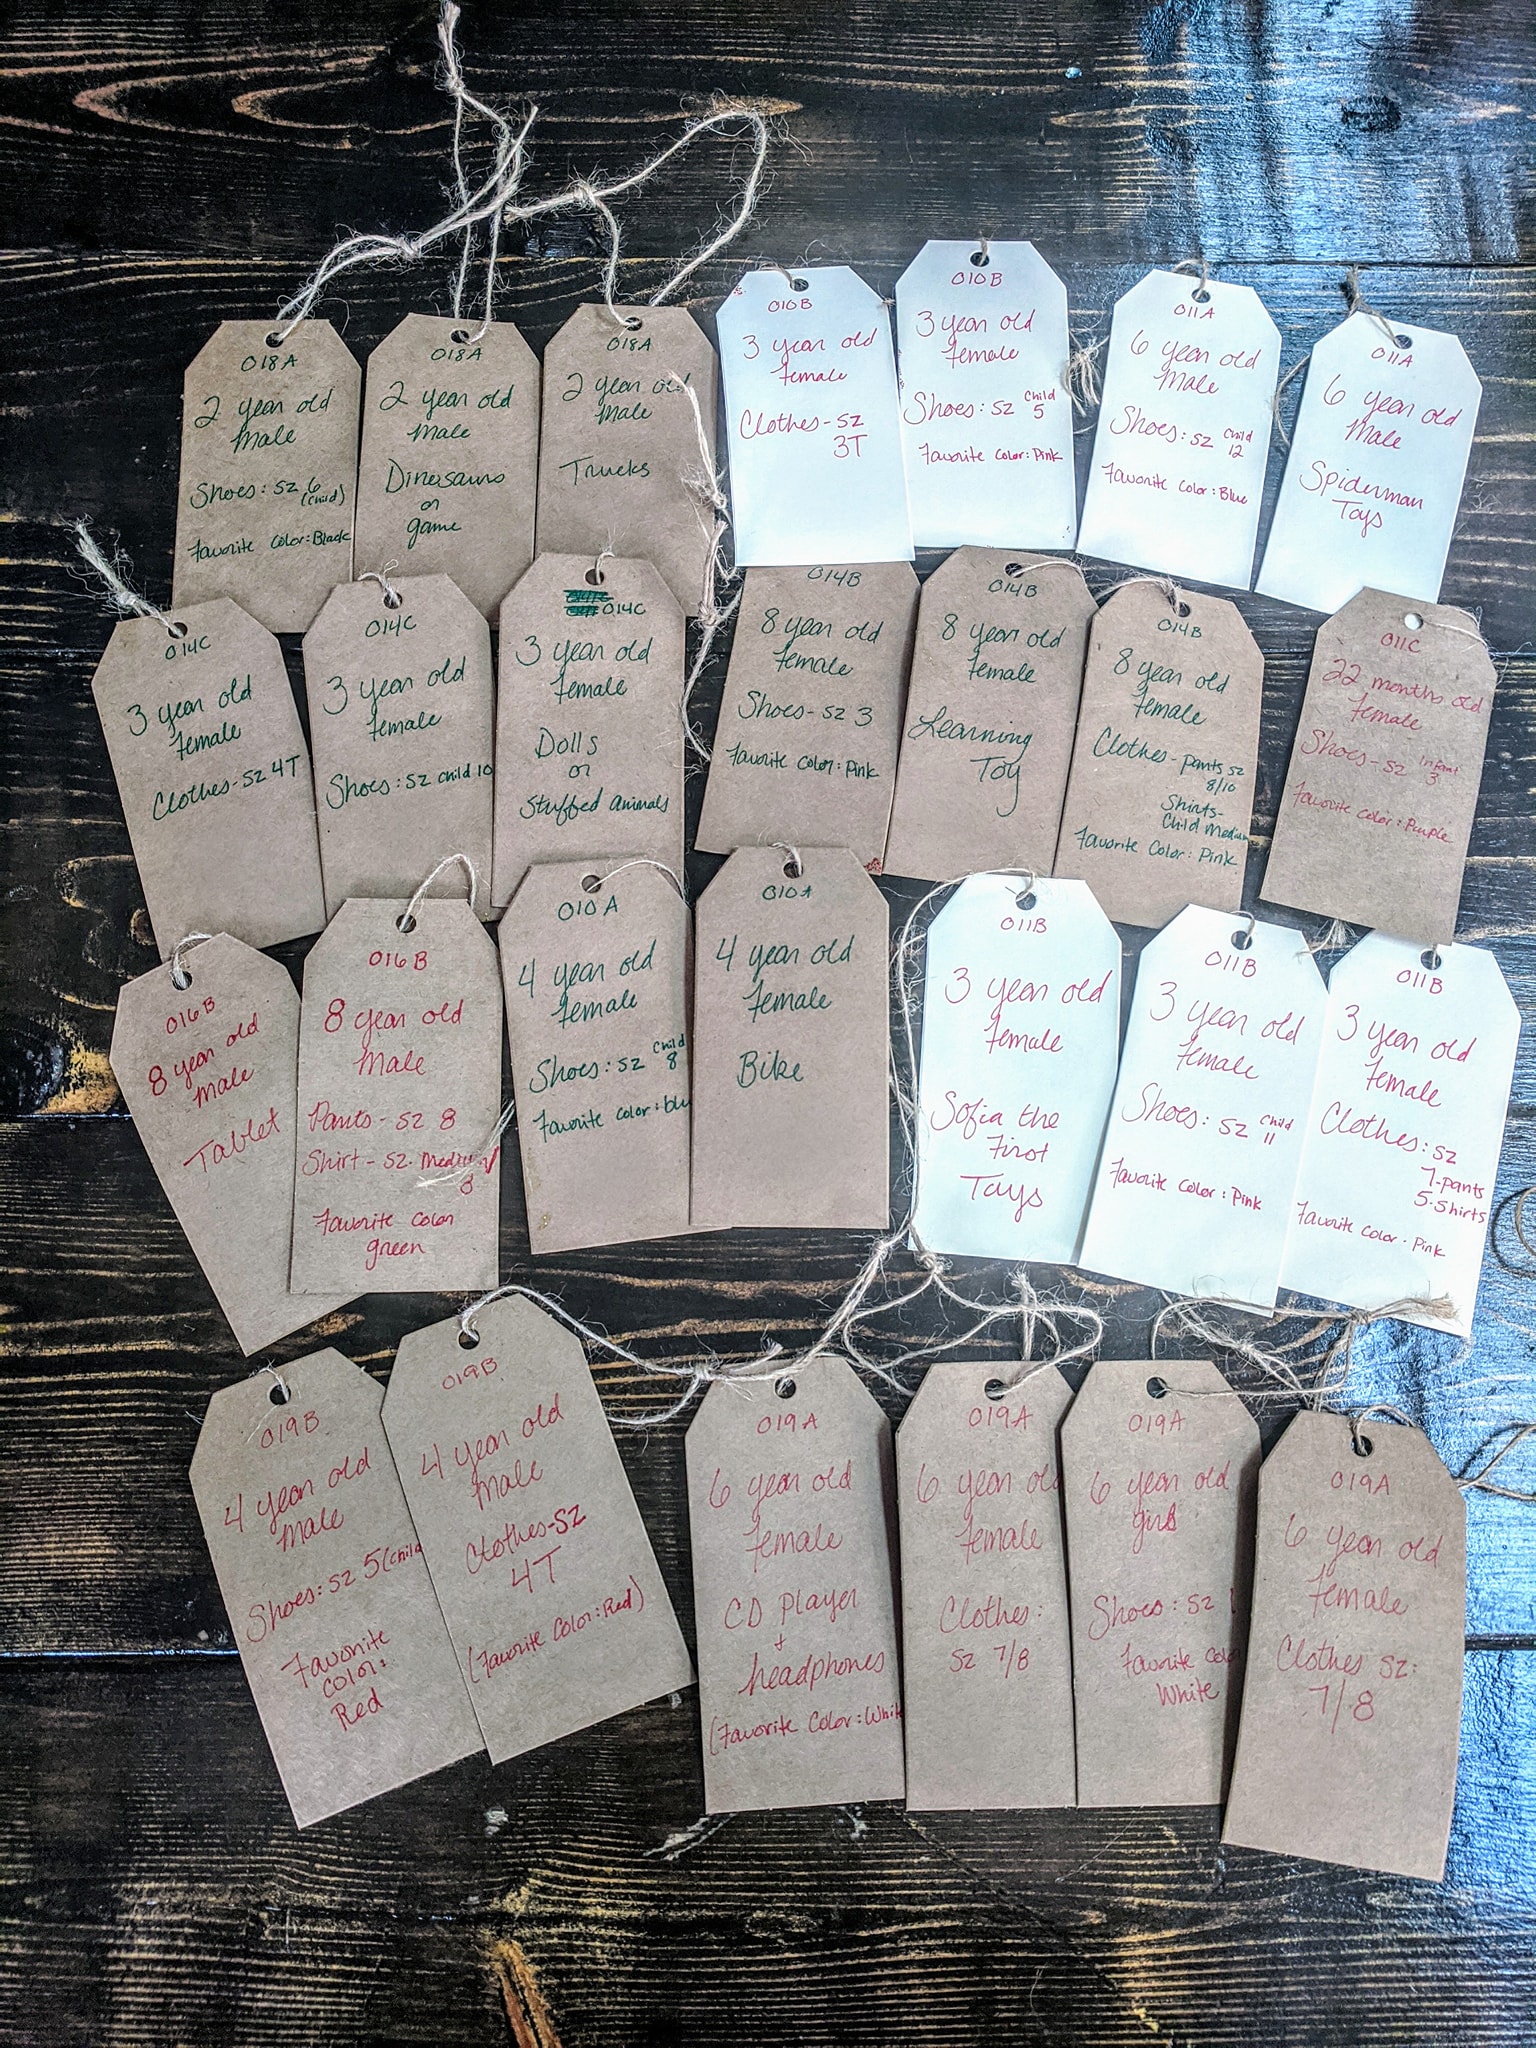 018A
2 year old
Male
Shoes: sz 6
(child)
Favorite color: Black
018A
2 year old
Male
Dinosaurs
or
game
018A
2 year old
Male
Trucks
010B
3 year old
Female
Clothes - sz
3T
010B
3 year old
Female
Shoes: sz Child
5
Favorite color: Pink
011A
6 year old
Male
Shoes: sz Child
12
Favorite color: Blue
011A
6 year old
Male
Spiderman
Toys
014C
3 year old
Female
Clothes - sz 4T
014C
3 year old
Female
Shoes: sz child 10
014C
3 year old
Female
Dolls
or
Stuffed animals
014B
8 year old
Female
Shoes - sz 3
Favorite color: Pink
014B
8 year old
Female
Learning
Toy
014B
8 year old
Female
Clothes - pants sz
8/10
Shirts -
Child Medium
Favorite Color: Pink
011C
22 months old
Female
Shoes - sz Infant
3
Favorite color: Purple
016B
8 year old
Male
Tablet
016B
8 year old
Male
Pants - sz 8
Shirt - sz. Medium/
8
Favorite color
green
010A
4 year old
Female
Shoes: sz Child
8
Favorite color: blu
010A
4 year old
Female
Bike
011B
3 year old
Female
Sofia the
First
Toys
011B
3 year old
Female
Shoes: sz Child
11
Favorite color: Pink
011B
3 year old
Female
Clothes: sz
7-pants
5-Shirts
Favorite color - Pink
019B
4 year old
Male
Shoes: sz 5 (child
Favorite
color:
Red
019B
4 year old
Male
Clothes - sz
4T
(Favorite Color: Red)
019A
6 year old
Female
CD Player
+
headphones
(Favorite Color: White
019A
6 year old
Female
Clothes:
sz 7/8
019A
6 year old
girls
Shoes: sz
Favorite colo
White
019A
6 year old
Female
Clothes sz:
7/8